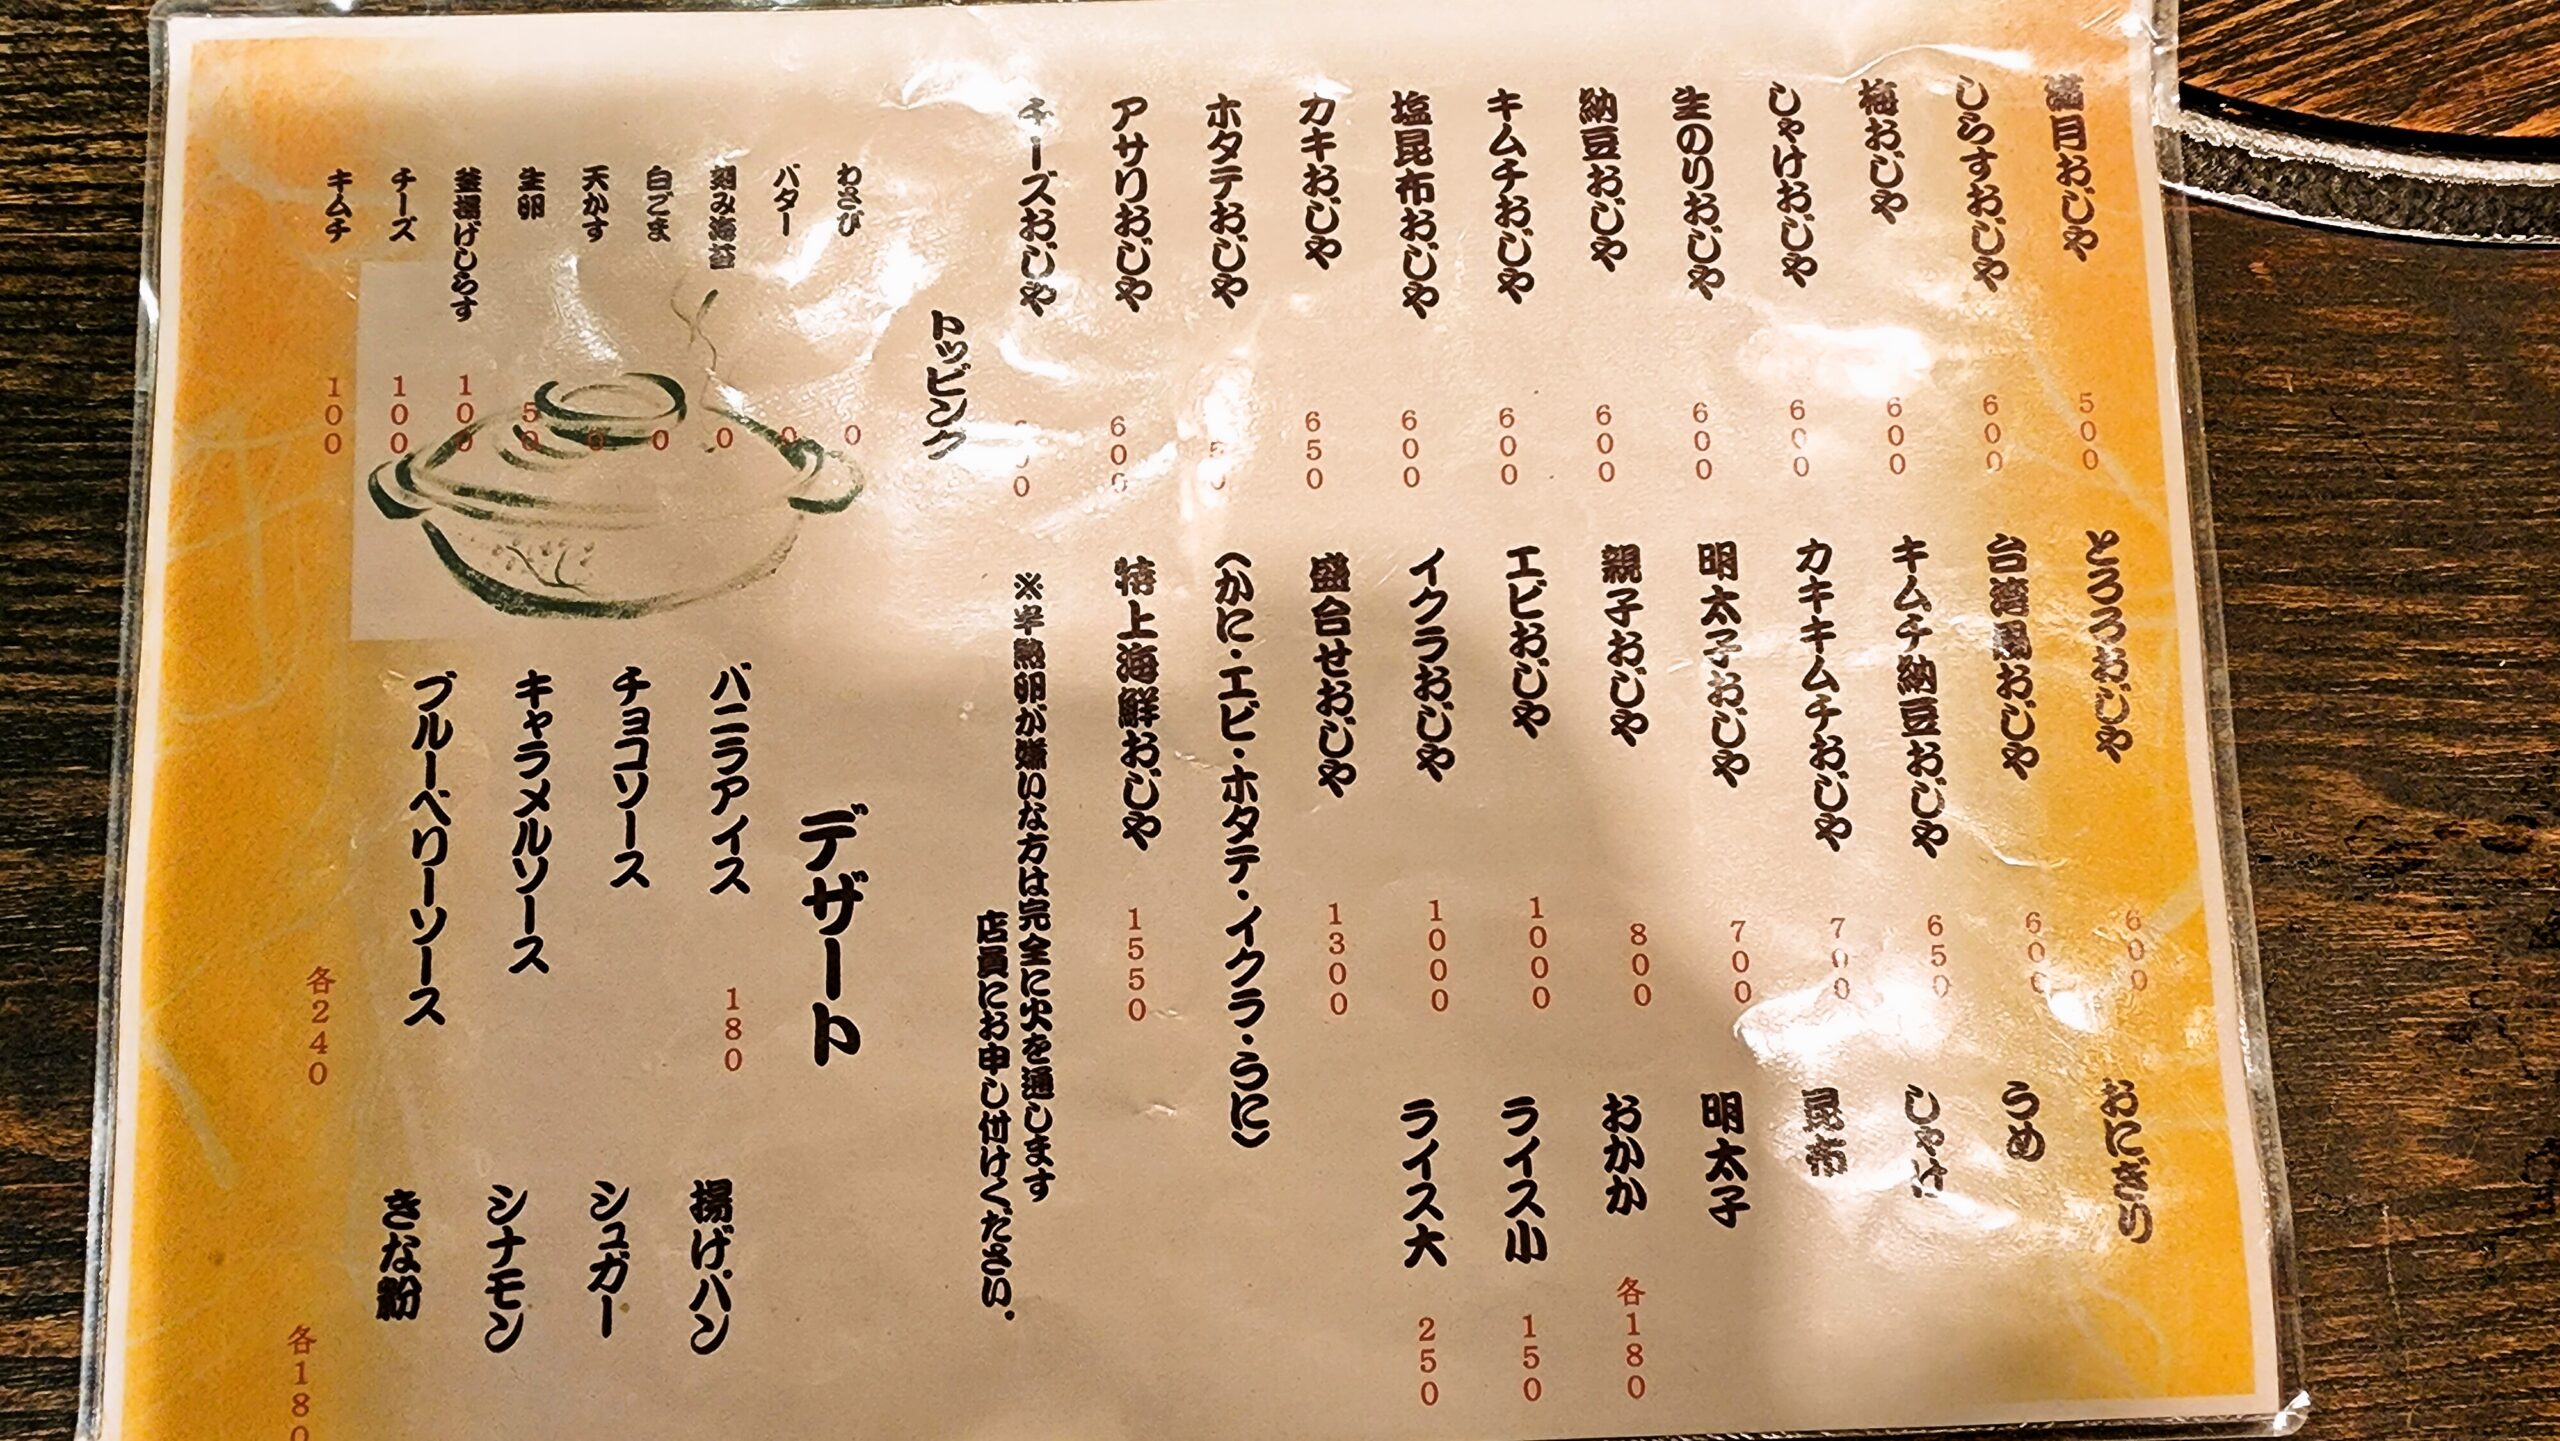 月おじや 500
しらすおじや 600
梅おじや 600
しゃけおじや 600
生のりおじや 600
納豆おじや 600
キムチおじや 600
塩昆布おじや 600
カキおじや 650
ホタテおじや
アサリおじや 600
チーズおじや
とろろおじや 600
台湾風おじや 600
キムチ納豆おじや 650
カキキムチおじや 700
明太子おじや 700
親子おじや 800
エビおじや 1000
イクラおじや 1000
盛合せおじや 1300
(かに・エビ・ホタテ・イクラ・うに)
特上海鮮おじや 1550
※半熟卵が嫌いな方は完全に火を通します
店員にお申し付けください.
おにぎり
うめ
しゃけ
昆布
明太子
おかか 各180
ライス小 150
ライス大 250
トッピング
わさび 0
バター 0
刻み海苔 0
白ごま 0
天かす 0
生卵 50
釜揚げしらす 100
チーズ 100
キムチ 100
デザート
バニラアイス 180
チョコソース
キャラメルソース
ブルーベリーソース
各240
揚げパン
シュガー
シナモン
きな粉
各180